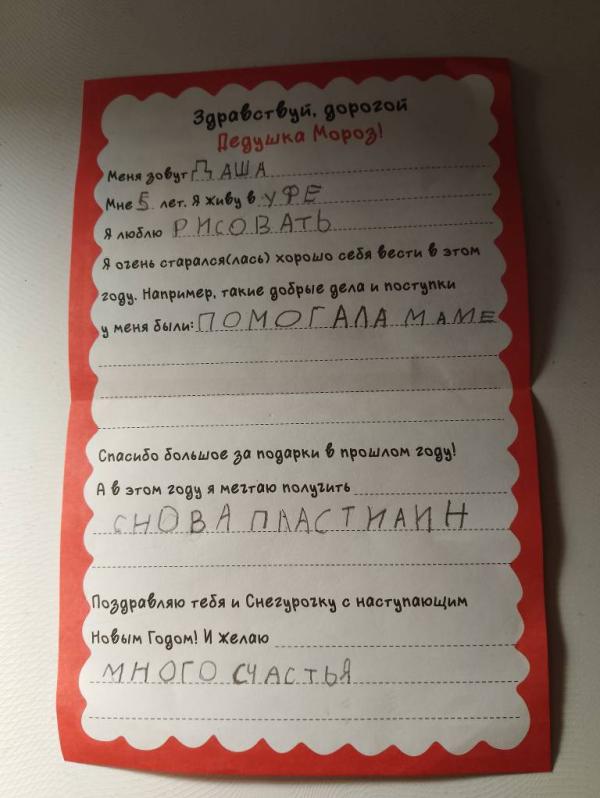 Здравствуй, дорогой
Дедушка Мороз!
Меня зовут ДАША
Мне 5 лет. Я живу в УФЕ
Я люблю РИСОВАТЬ
Я очень старался(лась) хорошо себя вести в этом
году. Например, такие добрые дела и поступки
у меня были: ПОМОГАЛА МАМЕ
Спасибо большое за подарки в прошлом году!
А в этом году я мечтаю получить
СНОВА ПЛАСТИЛИН
Поздравляю тебя и Снегурочку с наступающим
Новым Годом! И желаю
МНОГО СЧАСТЬЯ